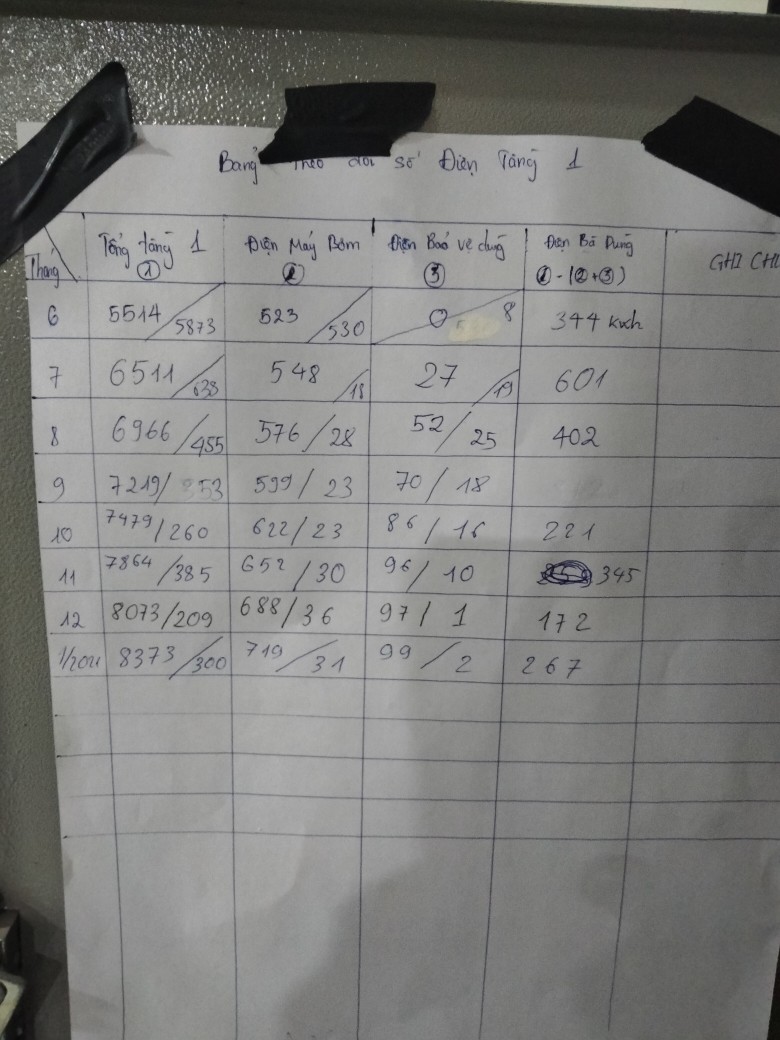 Bảng Theo dõi số Điện Tầng 1
Tháng Tổng tầng 1 Điện Máy Bơm Điện Bảo vệ dùng Điện Bà Dung GHI CHÚ
① ② ③ ①-(②+③)
6 5514/5873 523/530 0 8 344 kwh
7 6511/638 548/18 27/19 601
8 6966/455 576/28 52/25 402
9 7219/353 599/23 70/18
10 7479/260 622/23 86/16 221
11 7864/385 652/30 96/10 345
12 8073/209 688/36 97/1 172
8373/300 719/31 99/2 267